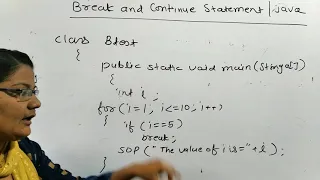 Break and Continue Statement/java
Class Btest
{
public static void main(String a[])
{
int i;
for(i=1; i<=10; i++)
{ if (i==5)
break;
SOP("The value of i is="+i);
}